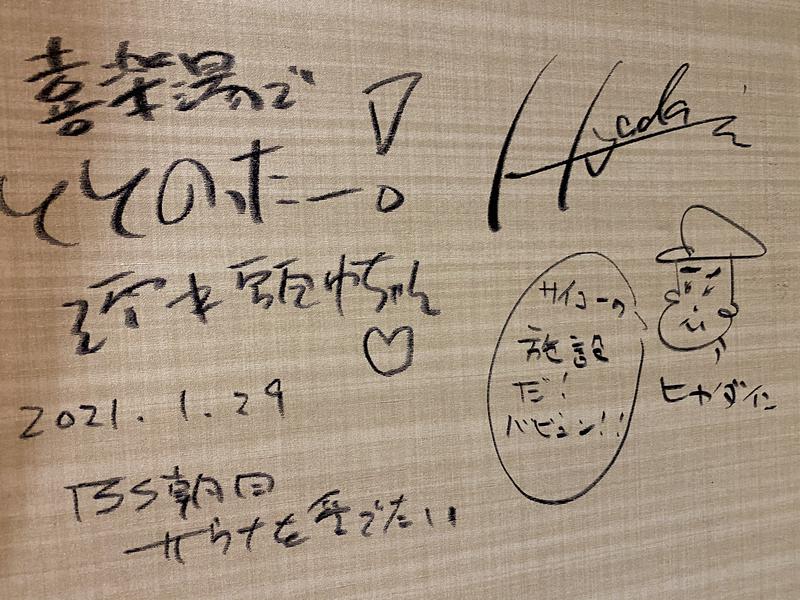 喜楽湯で
ととのったー!
濡れ頭巾ちゃん
♡
2021.1.29
BS朝日
サウナを愛でたい
Hyadain
サイコーの
施設
だ!
バビュン!!
ヒャダイン